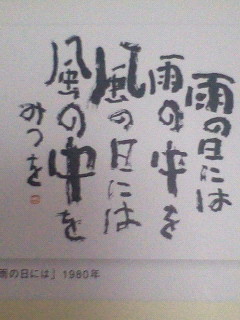 雨の日には
雨の中を
風の日には
風の中を
みつを
雨の日には」1980年